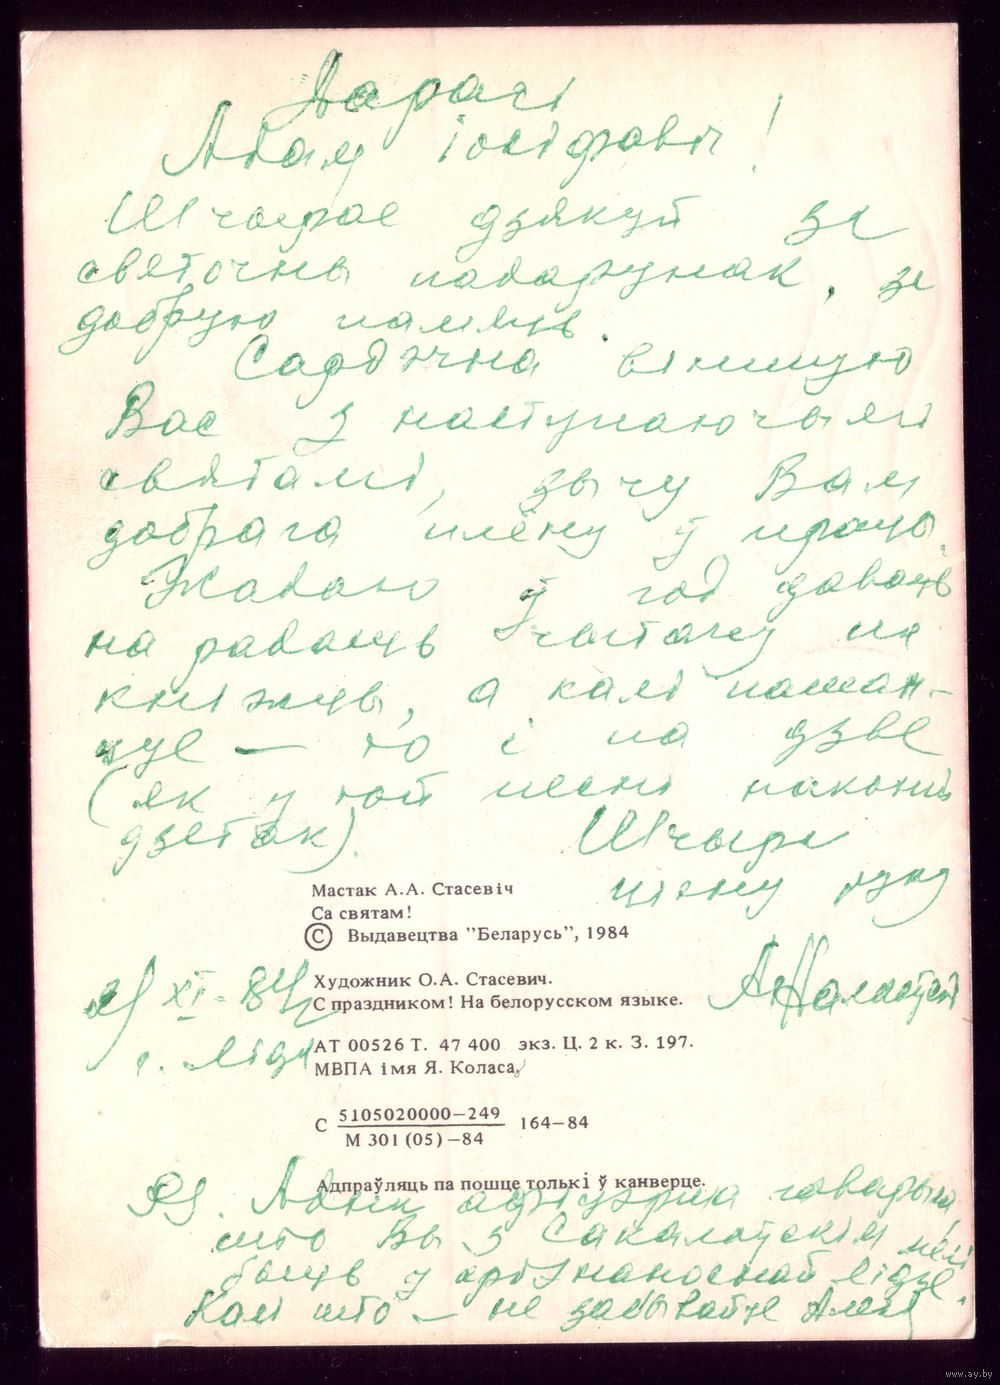 Дарагі
Адам Іосіфавіч!
Шчырае дзякуй за
святочны падарунак, за
добрую памяць.
Сардэчна віншую
Вас з наступаючымі
святамі, зычу Вам
добрага плёну ў працы.
Жадаю ў год даваць
на радасць чытачу па
кніжцы, а калі пашан-
цуе — то і па дзве
(як у той песні наконт
дзетак). Шчыра
цісну руку
Мастак А.А. Стасевіч
Са святам!
© Выдавецтва "Беларусь", 1984
XI-84
г. Ліда
Художник О.А. Стасевич.
С праздником! На белорусском языке.
АТ 00526 Т. 47 400 экз. Ц. 2 к. З. 197.
МВПА імя Я. Коласа.
С 5105020000—249 164—84
М 301 (05)—84
Адпраўляць па пошце толькі ў канверце.
што Вы з Сакалоўскім мелі
быць у Лідзе.
Калі што — не забывайце
www.ay.by